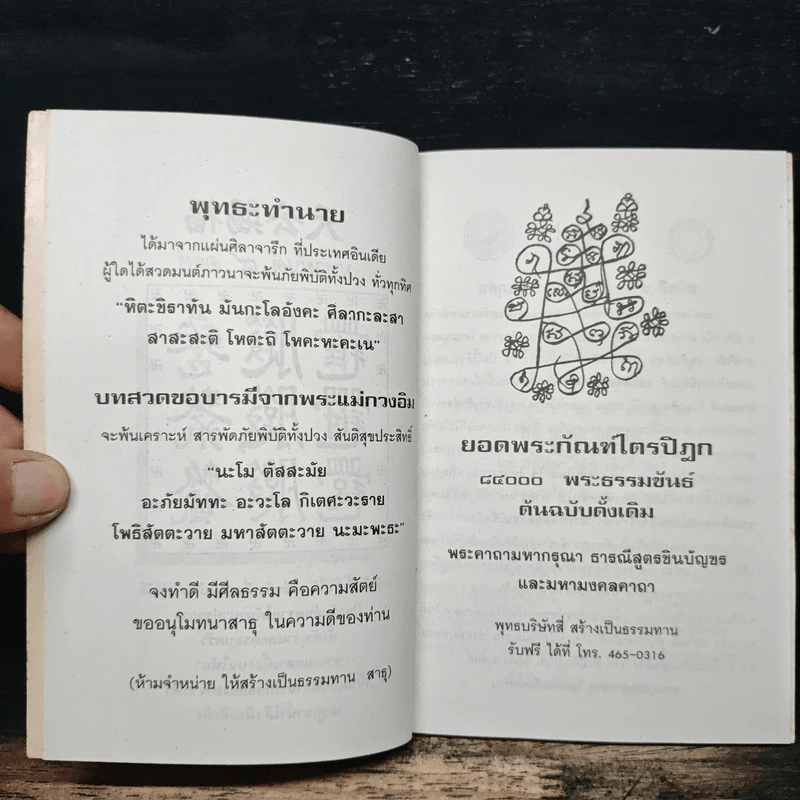 พุทธะทำนาย
ได้มาจากแผ่นศิลาจารึก ที่ประเทศอินเดีย
ผู้ใดได้สวดมนต์ภาวนาจะพ้นภัยพิบัติทั้งปวง ทั่วทุกทิศ
“หิตะขิธาทัน มันกะโลอังคะ ศิลากะละสา
สาสะสะติ โหตะถิ โหคะหะคะเน”
บทสวดขอบารมีจากพระแม่กวงอิม
จะพ้นเคราะห์ สารพัดภัยพิบัติทั้งปวง สันติสุขประสิทธิ์
“นะโม ตัสสะมัย
อะภัยมัททะ อะวะโล กิเตศะวะธาย
โพธิสัตตะวาย มหาสัตตะวาย นะมะพะธะ”
จงทำดี มีศีลธรรม คือความสัตย์
ขออนุโมทนาสาธุ ในความดีของท่าน
(ห้ามจำหน่าย ให้สร้างเป็นธรรมทาน สาธุ)
ยอดพระกัณฑ์ไตรปิฎก
๘๔๐๐๐ พระธรรมขันธ์
ต้นฉบับดั้งเดิม
พระคาถามหากรุณา ธารณีสูตรชินบัญชร
และมหามงคลคาถา
พุทธบริษัทสี่ สร้างเป็นธรรมทาน
รับฟรี ได้ที่ โทร. 465-0316